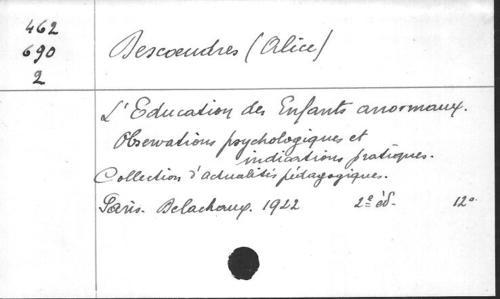 462
690
2
Descoeudres (Alice)
L'Education des Enfants anormaux.
Observations psychologiques et
indications pratiques.
Collection d'actualités pédagogiques.
Paris. Delachaux. 1922 2e éd. 12o